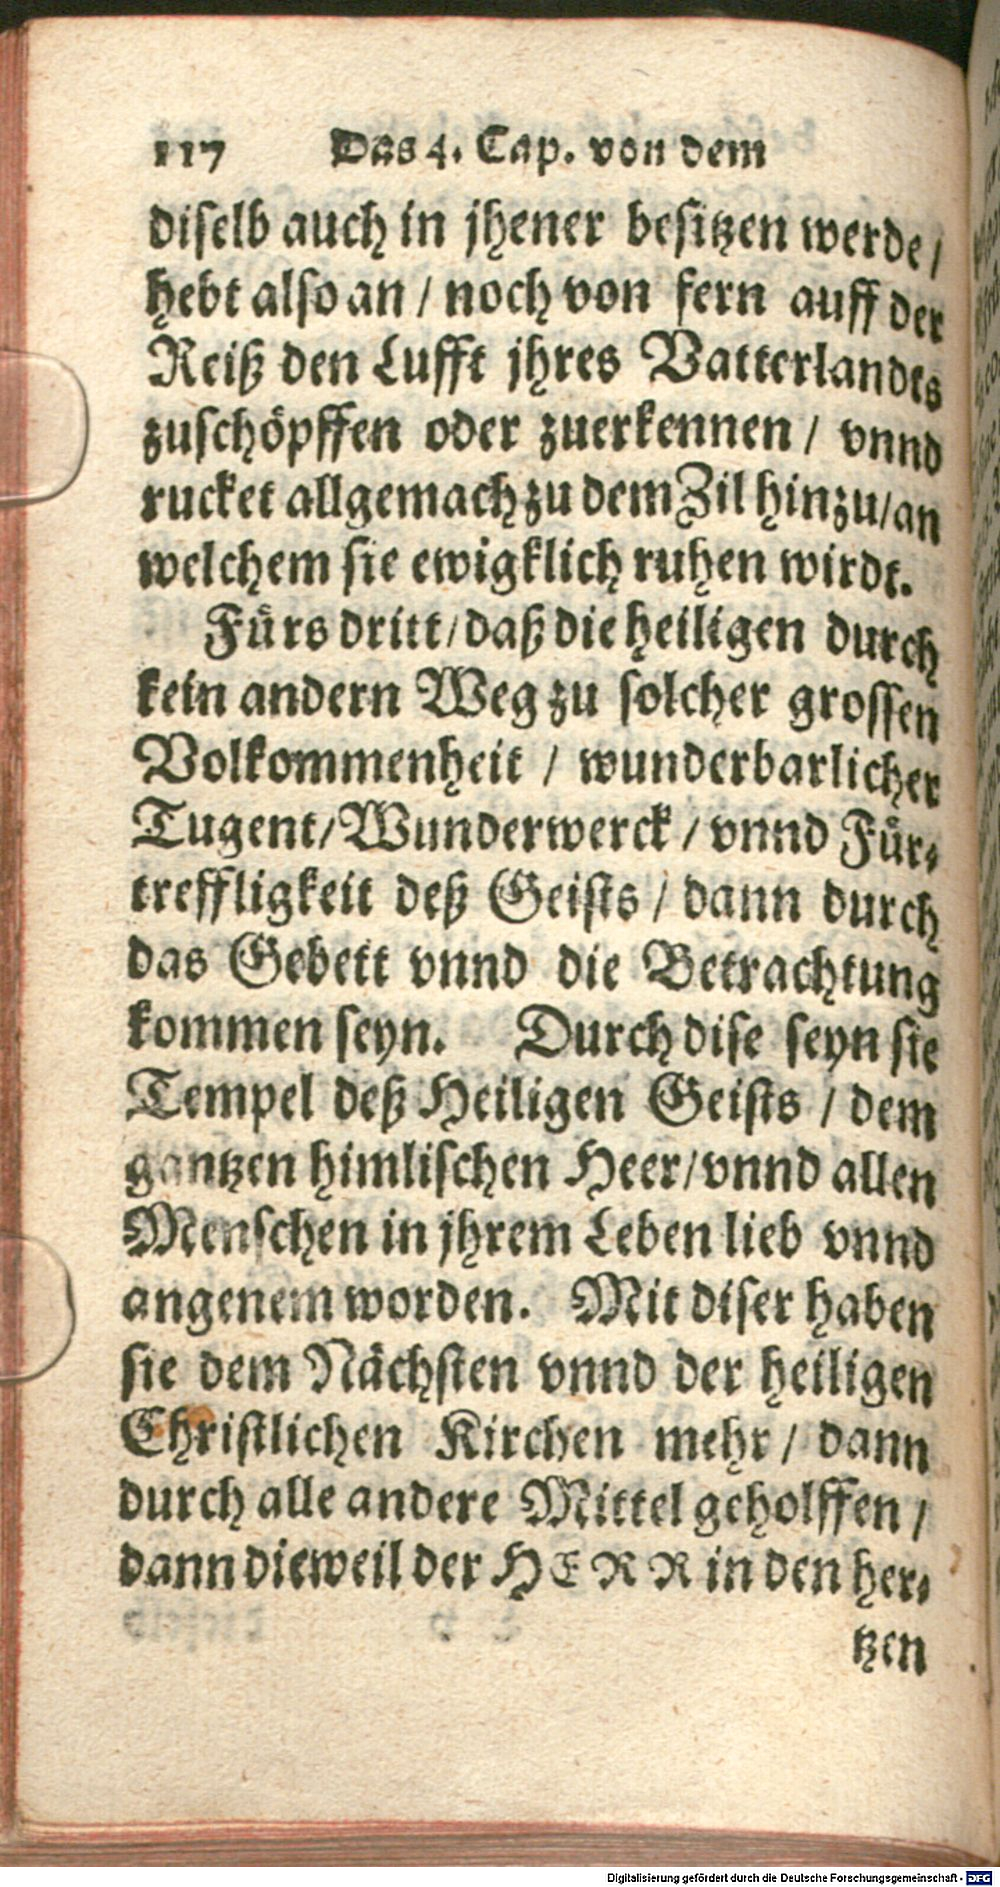 117 Das 4. Cap. von dem
diſelb auch in jhener beſitzen werde /
hebt alſo an / noch von fern auff der
Reiß den Lufft jhres Vatterlandes
zuſchöpffen oder zuerkennen / vnnd
rucket allgemach zu dem Zil hinzu / an
welchem ſie ewigklich ruhen wirdt.
Fuͤrs dritt / daß die heiligen durch
kein andern Weg zu ſolcher groſſen
Volkommenheit / wunderbarlicher
Tugent / Wunderwerck / vnnd Fuͤr⸗
treffligkeit deß Geiſts / dann durch
das Gebett vnnd die Betrachtung
kommen ſeyn. Durch diſe ſeyn ſie
Tempel deß Heiligen Geiſts / dem
gantzen himliſchen Heer / vnnd allen
Menſchen in jhrem Leben lieb vnnd
angenem worden. Mit diſer haben
ſie dem Nächſten vnnd der heiligen
Chriſtlichen Kirchen mehr / dann
durch alle andere Mittel geholffen /
dann dieweil der HERR in den her⸗
tzen
Digitalisierung gefördert durch die Deutsche Forschungsgemeinschaft - DFG